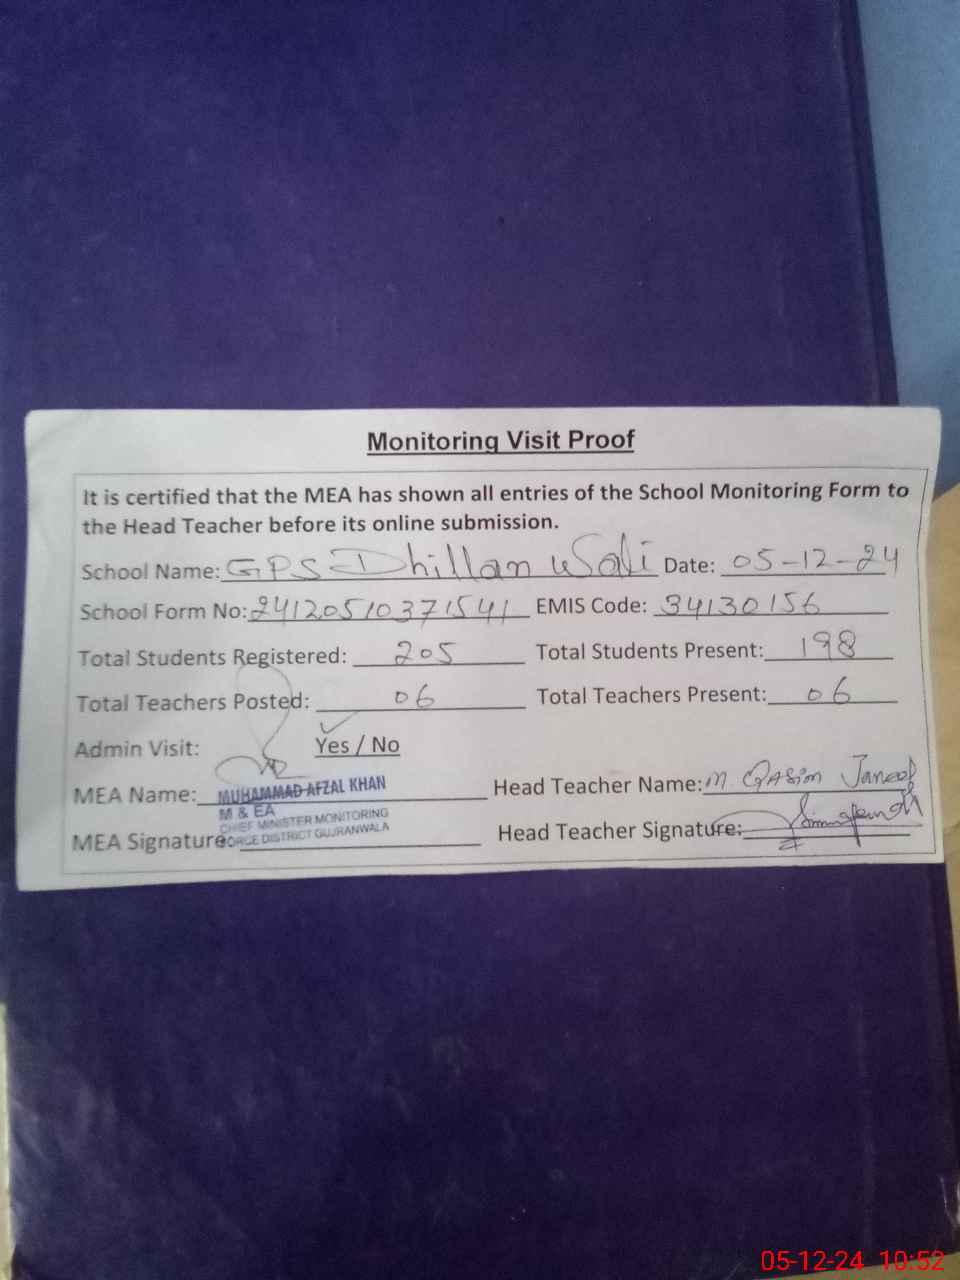 Monitoring Visit Proof
It is certified that the MEA has shown all entries of the School Monitoring Form to
the Head Teacher before its online submission.
School Name: GPS Dhillan Wali Date: 05-12-24
School Form No: 24120510371541 EMIS Code: 34130156
Total Students Registered: 205 Total Students Present: 198
Total Teachers Posted: 06 Total Teachers Present: 06
Admin Visit: Yes / No
MEA Name: MUHAMMAD AFZAL KHAN Head Teacher Name: M. Qasim
M & EA
CHIEF MINISTER MONITORING
MEA Signature: FORCE DISTRICT GUJRANWALA Head Teacher Signature:
05-12-24 10:52